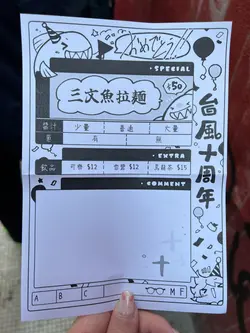 おめでとう
SPECIAL
三文魚拉麵
$50
台風十周年
醬汁 少量 普通 大量
蔥 有 無
EXTRA
飲品 可樂 $12 雪碧 $12 烏龍茶 $15
COMMENT
A B C M F